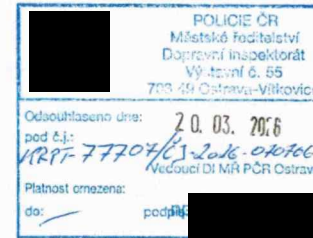 POLICIE ČR
Městské ředitelství
Dopravní inspektorát
Výstavní č. 55
703 49 Ostrava-Vítkovice
Odsouhlaseno dne: 20. 03. 2026
pod č.j.:
KRPT-77707/ČJ-2026-070706
Vedoucí DI MŘ PČR Ostrava
Platnost omezena:
do: